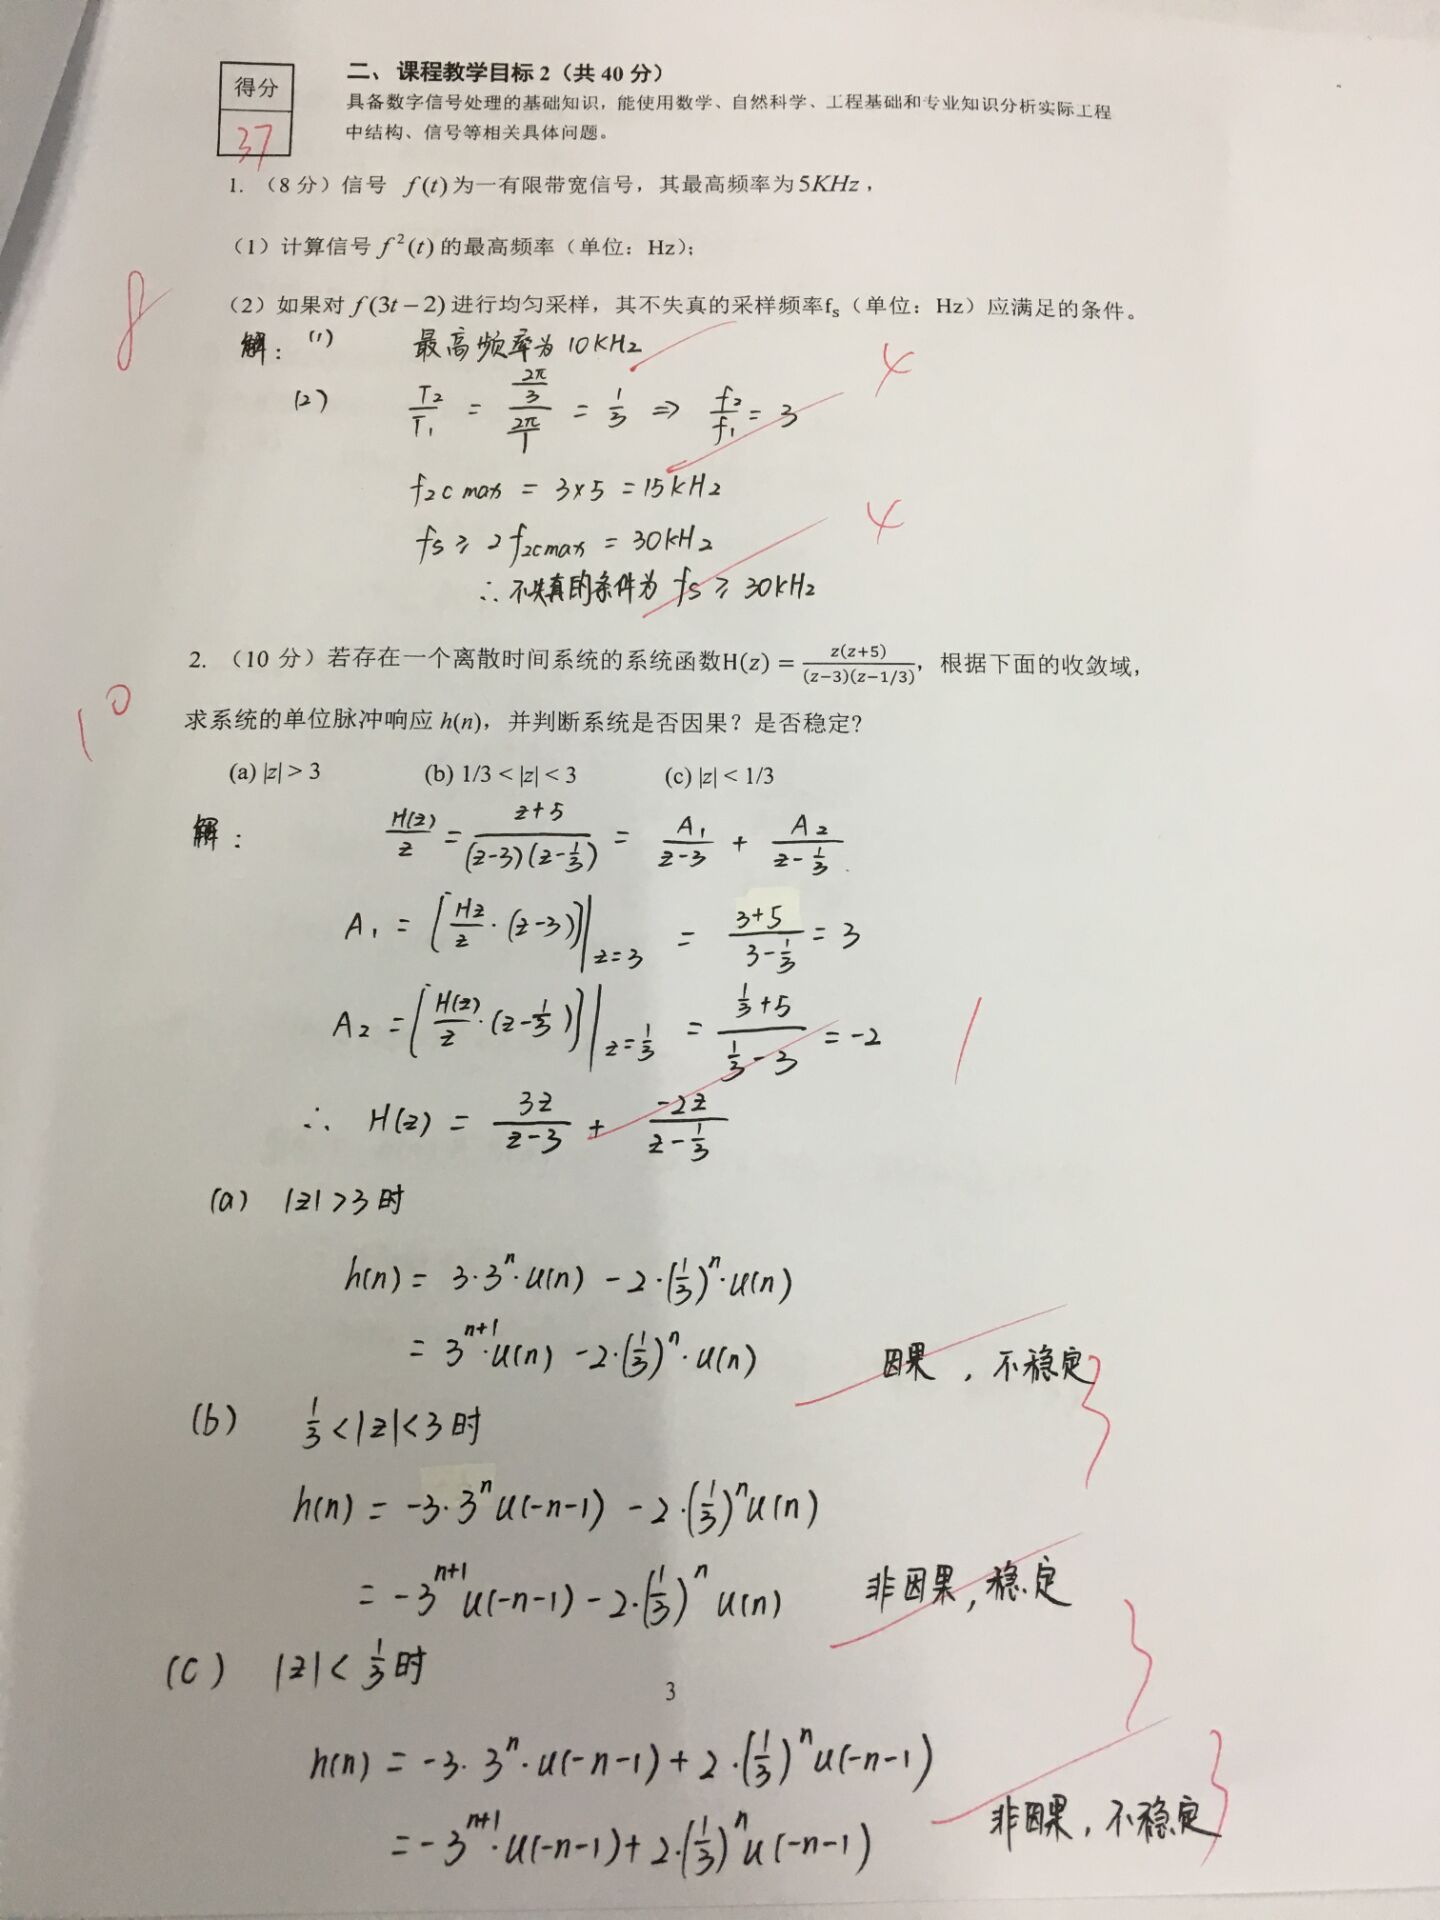 得分
37
二、课程教学目标 2（共 40 分）
具备数字信号处理的基础知识，能使用数学、自然科学、工程基础和专业知识分析实际工程
中结构、信号等相关具体问题。
1. （8 分）信号 f(t)为一有限带宽信号，其最高频率为5KHz，
（1）计算信号 f²(t) 的最高频率（单位：Hz）；
8
（2）如果对 f(3t－2) 进行均匀采样，其不失真的采样频率fₛ（单位：Hz）应满足的条件。
解： (1) 最高频率为 10KHz
4
(2) T₂/T₁ = (2π/3)/(2π/1) = 1/3 ⇒ f₂/f₁ = 3
f₂cmax = 3×5 = 15KHz
4
fs ≥ 2f₂cmax = 30KHz
∴ 不失真的条件为 fs ≥ 30KHz
10
2. （10 分）若存在一个离散时间系统的系统函数H(z) = z(z+5)/((z−3)(z−1/3))，根据下面的收敛域，
求系统的单位脉冲响应 h(n)，并判断系统是否因果？是否稳定？
(a) |z| > 3 (b) 1/3 < |z| < 3 (c) |z| < 1/3
解： H(z)/z = (z+5)/((z-3)(z-1/3)) = A₁/(z-3) + A₂/(z-1/3)
A₁ = [Hz/z · (z-3)]|z=3 = (3+5)/(3-1/3) = 3
A₂ = [H(z)/z · (z-1/3)]|z=1/3 = (1/3+5)/(1/3-3) = -2
1
∴ H(z) = 3z/(z-3) + -2z/(z-1/3)
(a) |z| > 3 时
h(n) = 3·3ⁿ·u(n) - 2·(1/3)ⁿ·u(n)
= 3ⁿ⁺¹·u(n) - 2·(1/3)ⁿ·u(n) 因果，不稳定
3
(b) 1/3 < |z| < 3 时
h(n) = -3·3ⁿu(-n-1) - 2·(1/3)ⁿu(n)
= -3ⁿ⁺¹u(-n-1) - 2·(1/3)ⁿu(n) 非因果，稳定
3
(c) |z| < 1/3 时
3
h(n) = -3·3ⁿ·u(-n-1) + 2·(1/3)ⁿu(-n-1)
3
= -3ⁿ⁺¹·u(-n-1) + 2·(1/3)ⁿu(-n-1) 非因果，不稳定